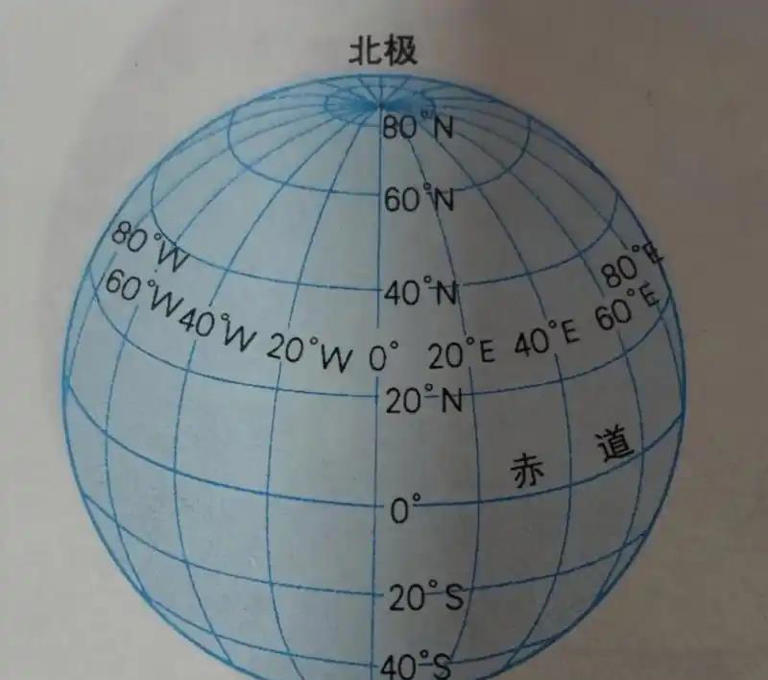 北极
80°N
60°N
80°W
80°E
60°W
40°N
60°E
40°W
20°W
0°
20°E
40°E
20°N
赤道
0°
20°S
40°S